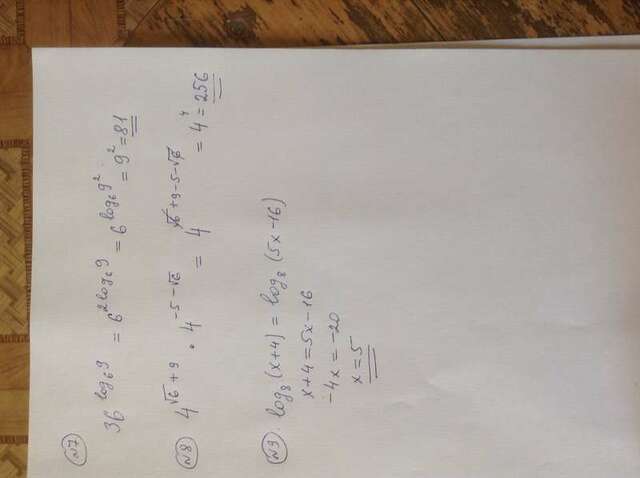 №7
36^{log₆9} = 6^{2log₆9} = 6^{log₆9²} = 9² = 81
№8 4^{√6+9} · 4^{-5-√6} = 4^{√6+9-5-√6} = 4⁴ = 256
№9. log₈(x+4) = log₈(5x-16)
x+4=5x-16
-4x = -20
x = 5